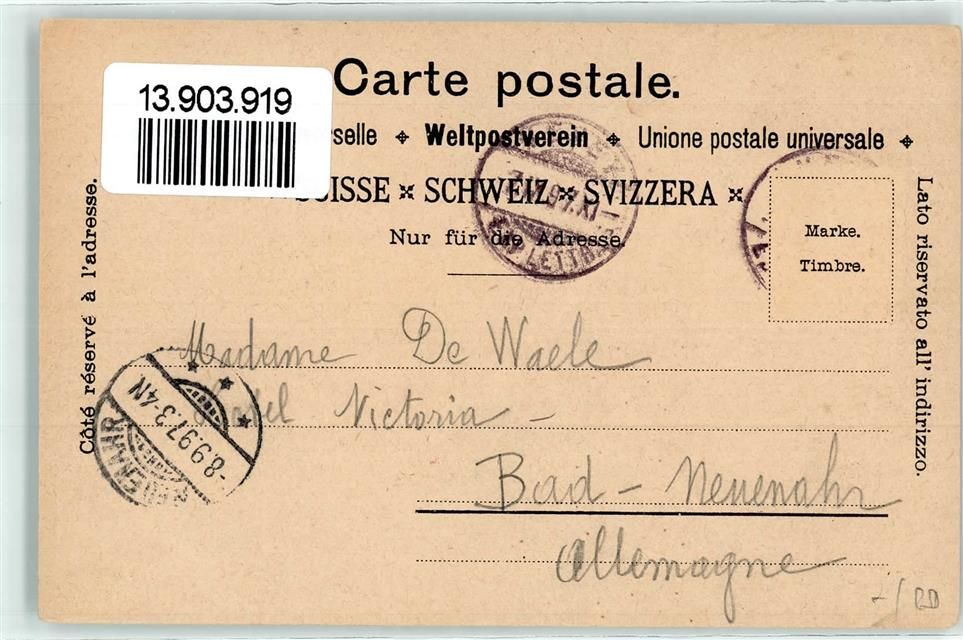 Carte postale.
13.903.919
selle ⌖ Weltpostverein ⌖ Unione postale universale ⌖
SUISSE ⌖ SCHWEIZ ⌖ SVIZZERA ⌖
Nur für die Adresse.
Marke.
Timbre.
Côté réservé à l'adresse.
Lato riservato all' indirizzo.
Madame De Waele
Hotel Victoria -
Bad - Neuenahr
Allemagne
8.9.97.3-4N